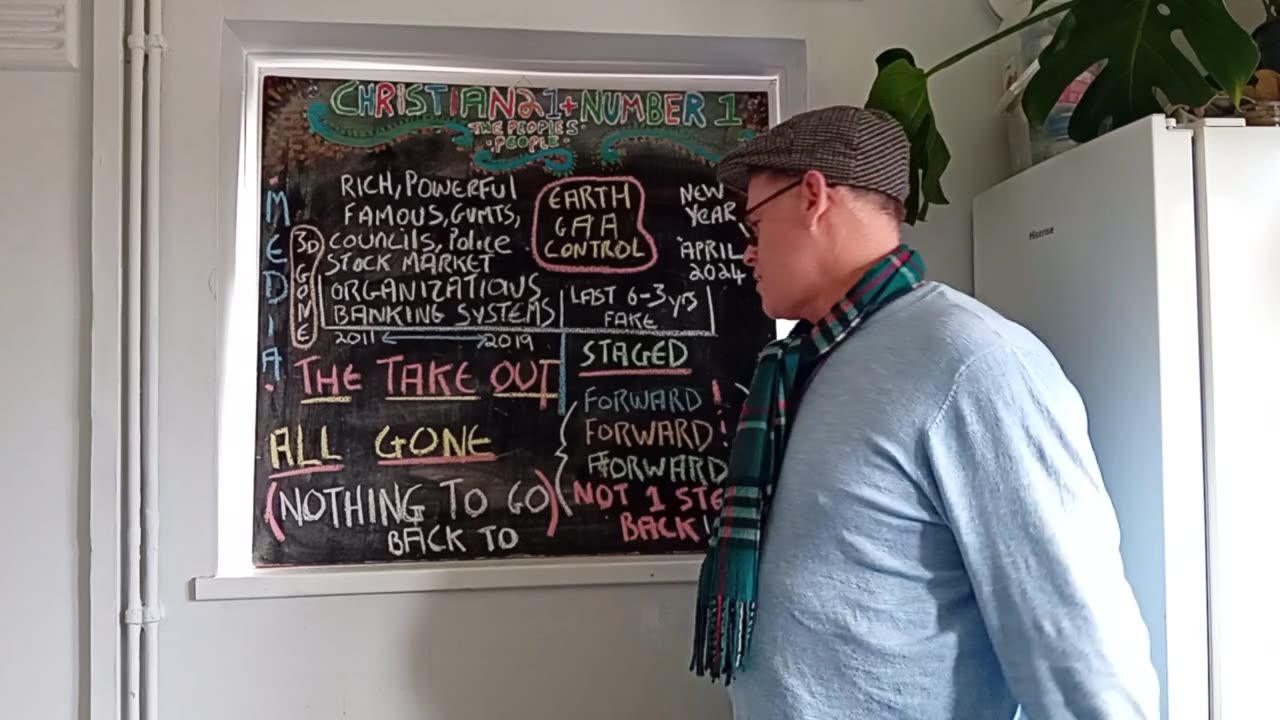 CHRISTIAN21+NUMBER 1
THE PEOPLE'S
PEOPLE
MEDIA
3D GONE
RICH, POWERFUL
FAMOUS, GVMTS,
COUNCILS, POLICE
STOCK MARKET
ORGANIZATIONS
BANKING SYSTEMS
2011 2019
EARTH
GAA
CONTROL
NEW
YEAR
APRIL
2024
LAST 6-3 yrs
FAKE
THE TAKE OUT
STAGED
ALL GONE
(NOTHING TO GO)
BACK TO
FORWARD!
FORWARD!
FORWARD
NOT 1 STE
BACK!
Hisense